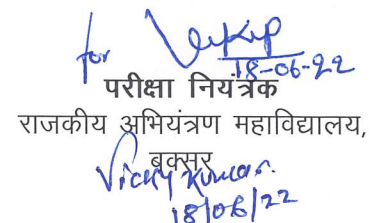 for
18-06-22
परीक्षा नियंत्रक
राजकीय अभियंत्रण महाविद्यालय,
बक्सर
Vicky Kumar.
18/06/22